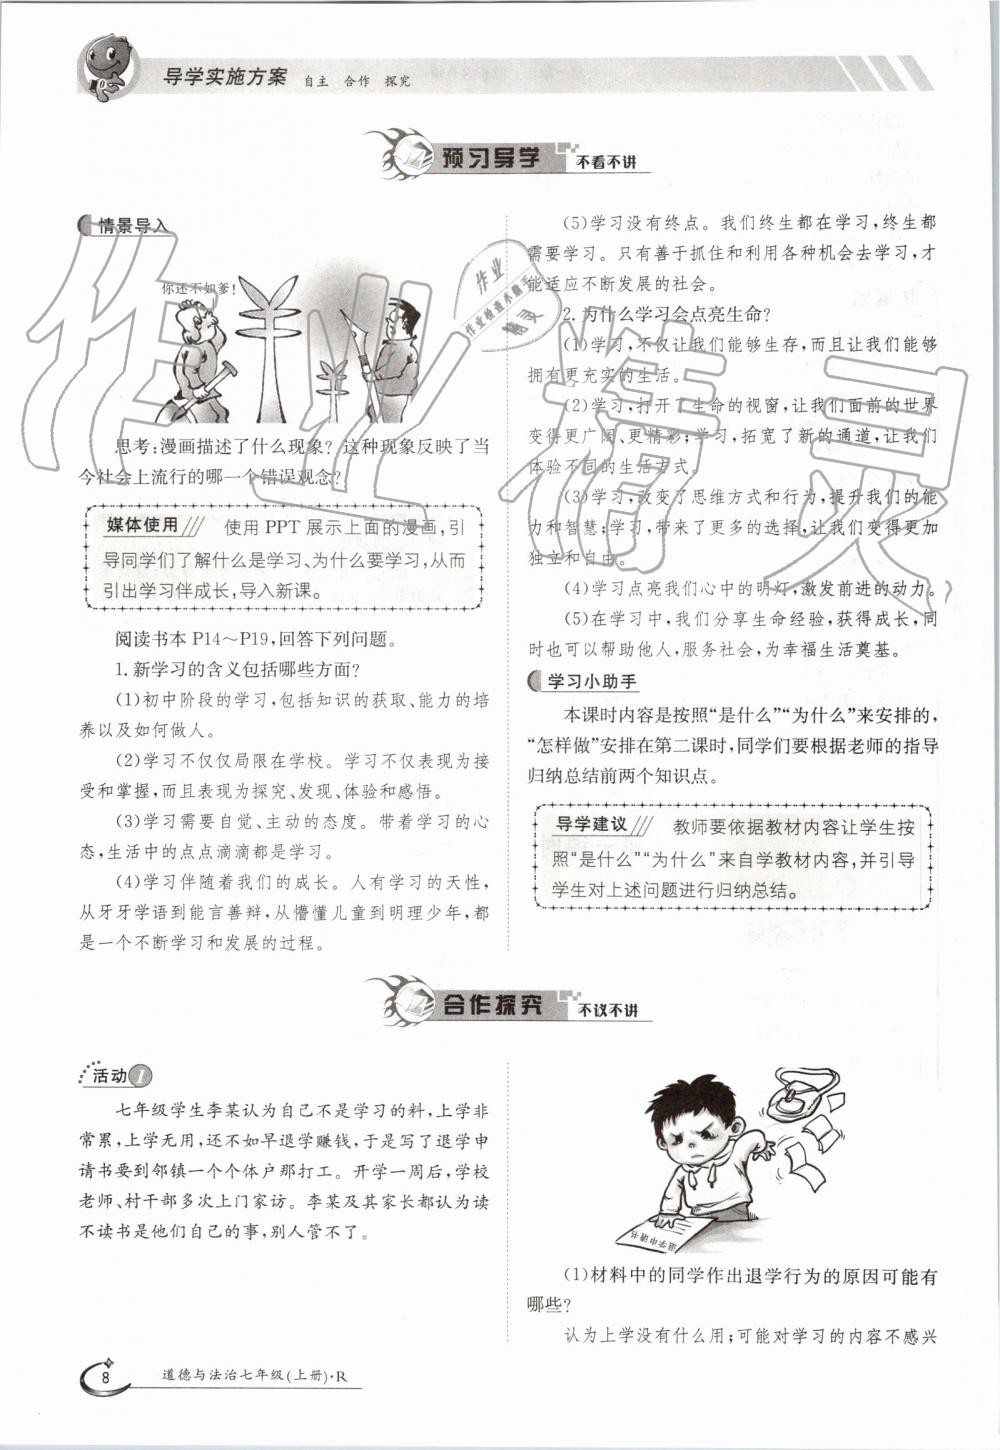 导学实施方案 自主 合作 探究
预习导学 不看不讲
情景导入
你还不如爹！
思考:漫画描述了什么现象？这种现象反映了当
今社会上流行的哪一个错误观念？
媒体使用 使用 PPT 展示上面的漫画,引
导同学们了解什么是学习、为什么要学习,从而
引出学习伴成长,导入新课。
阅读书本 P14～P19,回答下列问题。
1. 新学习的含义包括哪些方面？
(1)初中阶段的学习,包括知识的获取、能力的培
养以及如何做人。
(2)学习不仅仅局限在学校。学习不仅表现为接
受和掌握,而且表现为探究、发现、体验和感悟。
(3)学习需要自觉、主动的态度。带着学习的心
态,生活中的点点滴滴都是学习。
(4)学习伴随着我们的成长。人有学习的天性,
从牙牙学语到能言善辩,从懵懂儿童到明理少年,都
是一个不断学习和发展的过程。
(5)学习没有终点。我们终生都在学习,终生都
需要学习。只有善于抓住和利用各种机会去学习,才
能适应不断发展的社会。
2. 为什么学习会点亮生命？
(1)学习,不仅让我们能够生存,而且让我们能够
拥有更充实的生活。
(2)学习,打开了生命的视窗,让我们面前的世界
变得更广阔、更精彩;学习,拓宽了新的通道,让我们
体验不同的生活方式。
(3)学习,改变了思维方式和行为,提升我们的能
力和智慧;学习,带来了更多的选择,让我们变得更加
独立和自由。
(4)学习点亮我们心中的明灯,激发前进的动力。
(5)在学习中,我们分享生命经验,获得成长,同
时也可以帮助他人,服务社会,为幸福生活奠基。
学习小助手
本课时内容是按照“是什么”“为什么”来安排的,
“怎样做”安排在第二课时,同学们要根据老师的指导
归纳总结前两个知识点。
导学建议 教师要依据教材内容让学生按
照“是什么”“为什么”来自学教材内容,并引导
学生对上述问题进行归纳总结。
合作探究 不议不讲
活动1
七年级学生李某认为自己不是学习的料,上学非
常累,上学无用,还不如早退学赚钱,于是写了退学申
请书要到邻镇一个个体户那打工。开学一周后,学校
老师、村干部多次上门家访。李某及其家长都认为读
不读书是他们自己的事,别人管不了。
退学申请书
(1)材料中的同学作出退学行为的原因可能有
哪些?
认为上学没有什么用;可能对学习的内容不感兴
8 道德与法治七年级(上册)·R
作业精灵